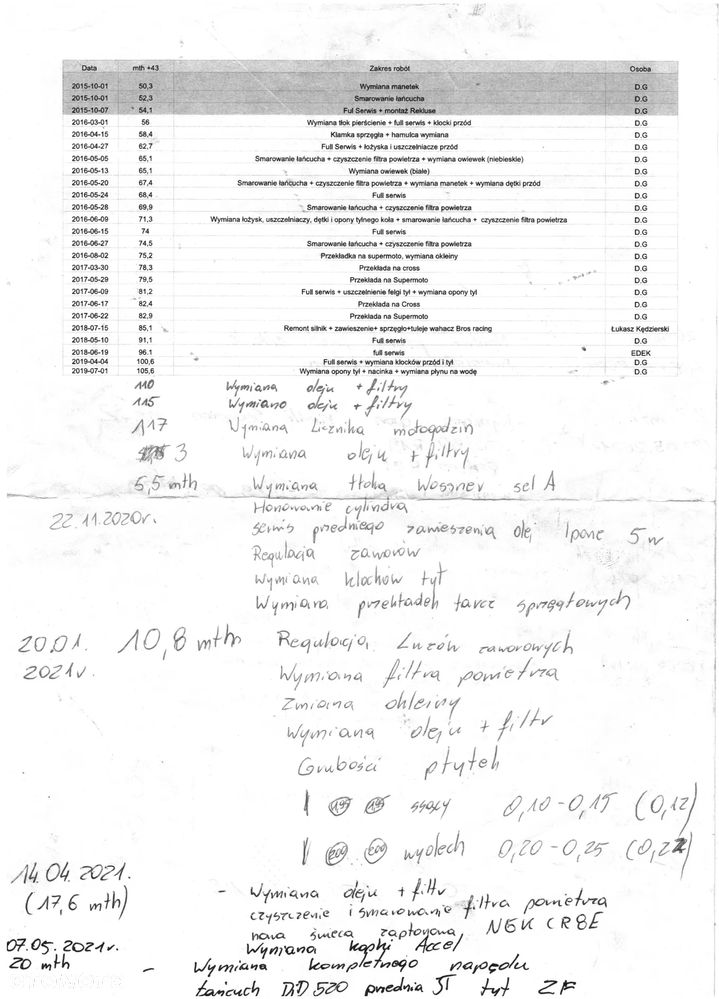 Data mth +43 Zakres robót Osoba
2015-10-01 50,3 Wymiana manetek D.G
2015-10-01 52,3 Smarowanie łańcucha D.G
2015-10-07 54,1 Ful Serwis + montaż Rekluse D.G
2016-03-01 56 Wymiana tłok pierścienie + full serwis + klocki przód D.G
2016-04-15 58,4 Klamka sprzęgła + hamulca wymiana D.G
2016-04-27 62,7 Full Serwis + łożyska i uszczelniacze przód D.G
2016-05-05 65,1 Smarowanie łańcucha + czyszczenie filtra powietrza + wymiana owiewek (niebieskie) D.G
2016-05-13 65,1 Wymiana owiewek (białe) D.G
2016-05-20 67,4 Smarowanie łańcucha + czyszczenie filtra powietrza + wymiana manetek + wymiana dętki przód D.G
2016-05-24 68,4 Full serwis D.G
2016-05-28 69,9 Smarowanie łańcucha + czyszczenie filtra powietrza D.G
2016-06-09 71,3 Wymiana łożysk, uszczelniaczy, dętki i opony tylnego koła + smarowanie łańcucha + czyszczenie filtra powietrza D.G
2016-06-15 74 Full serwis D.G
2016-06-27 74,5 Smarowanie łańcucha + czyszczenie filtra powietrza D.G
2016-08-02 75,2 Przekładka na supermoto, wymiana okleiny D.G
2017-03-30 78,3 Przekłada na cross D.G
2017-05-29 79,5 Przekłada na Supermoto D.G
2017-06-09 81,2 Full serwis + uszczelnienie felgi tył + wymiana opony tył D.G
2017-06-17 82,4 Przekłada na Cross D.G
2017-06-22 82,9 Przekłada na Supermoto D.G
2018-07-15 85,1 Remont silnik + zawieszenie+ sprzęgło+tuleje wahacz Bros racing Łukasz Kędzierski
2018-05-10 91,1 Full serwis D.G
2018-06-19 96.1 full serwis EDEK
2019-04-04 100,6 Full serwis + wymiana klocków przód i tył D.G
2019-07-01 105,6 Wymiana opony tył + nacinka + wymiana płynu na wodę D.G
110 Wymiana oleju + filtry
115 Wymiana oleju + filtry
117 Wymiana Licznika motogodzin
3 Wymiana oleju + filtry
5,5 mth Wymiana tłoka Wossner sel A
Honowanie cylindra
22.11.2020r. serwis przedniego zawieszenia olej Ipone 5w
Regulacja zaworów
Wymiana klocków tył
Wymiana przekładek tarcz sprzęgłowych
20.01. 2021r. 10,8 mth Regulacja Luzów zaworowych
Wymiana filtra powietrza
Zmiana okleiny
Wymiana oleju + filtr
Grubości płytek
195 195 ssący 0,10 - 0,15 (0,12)
200 200 wydech 0,20 - 0,25 (0,22)
14.04.2021. (17,6 mth) - Wymiana oleju + filtr
czyszczenie i smarowanie filtra powietrza
nowa świeca zapłonowa, NGK CR8E
Wymiana kapki Accel
07.05.2021r. 20 mth - Wymiana kompletnego napędu
łańcuch DID 520 przednia JT tył ZF